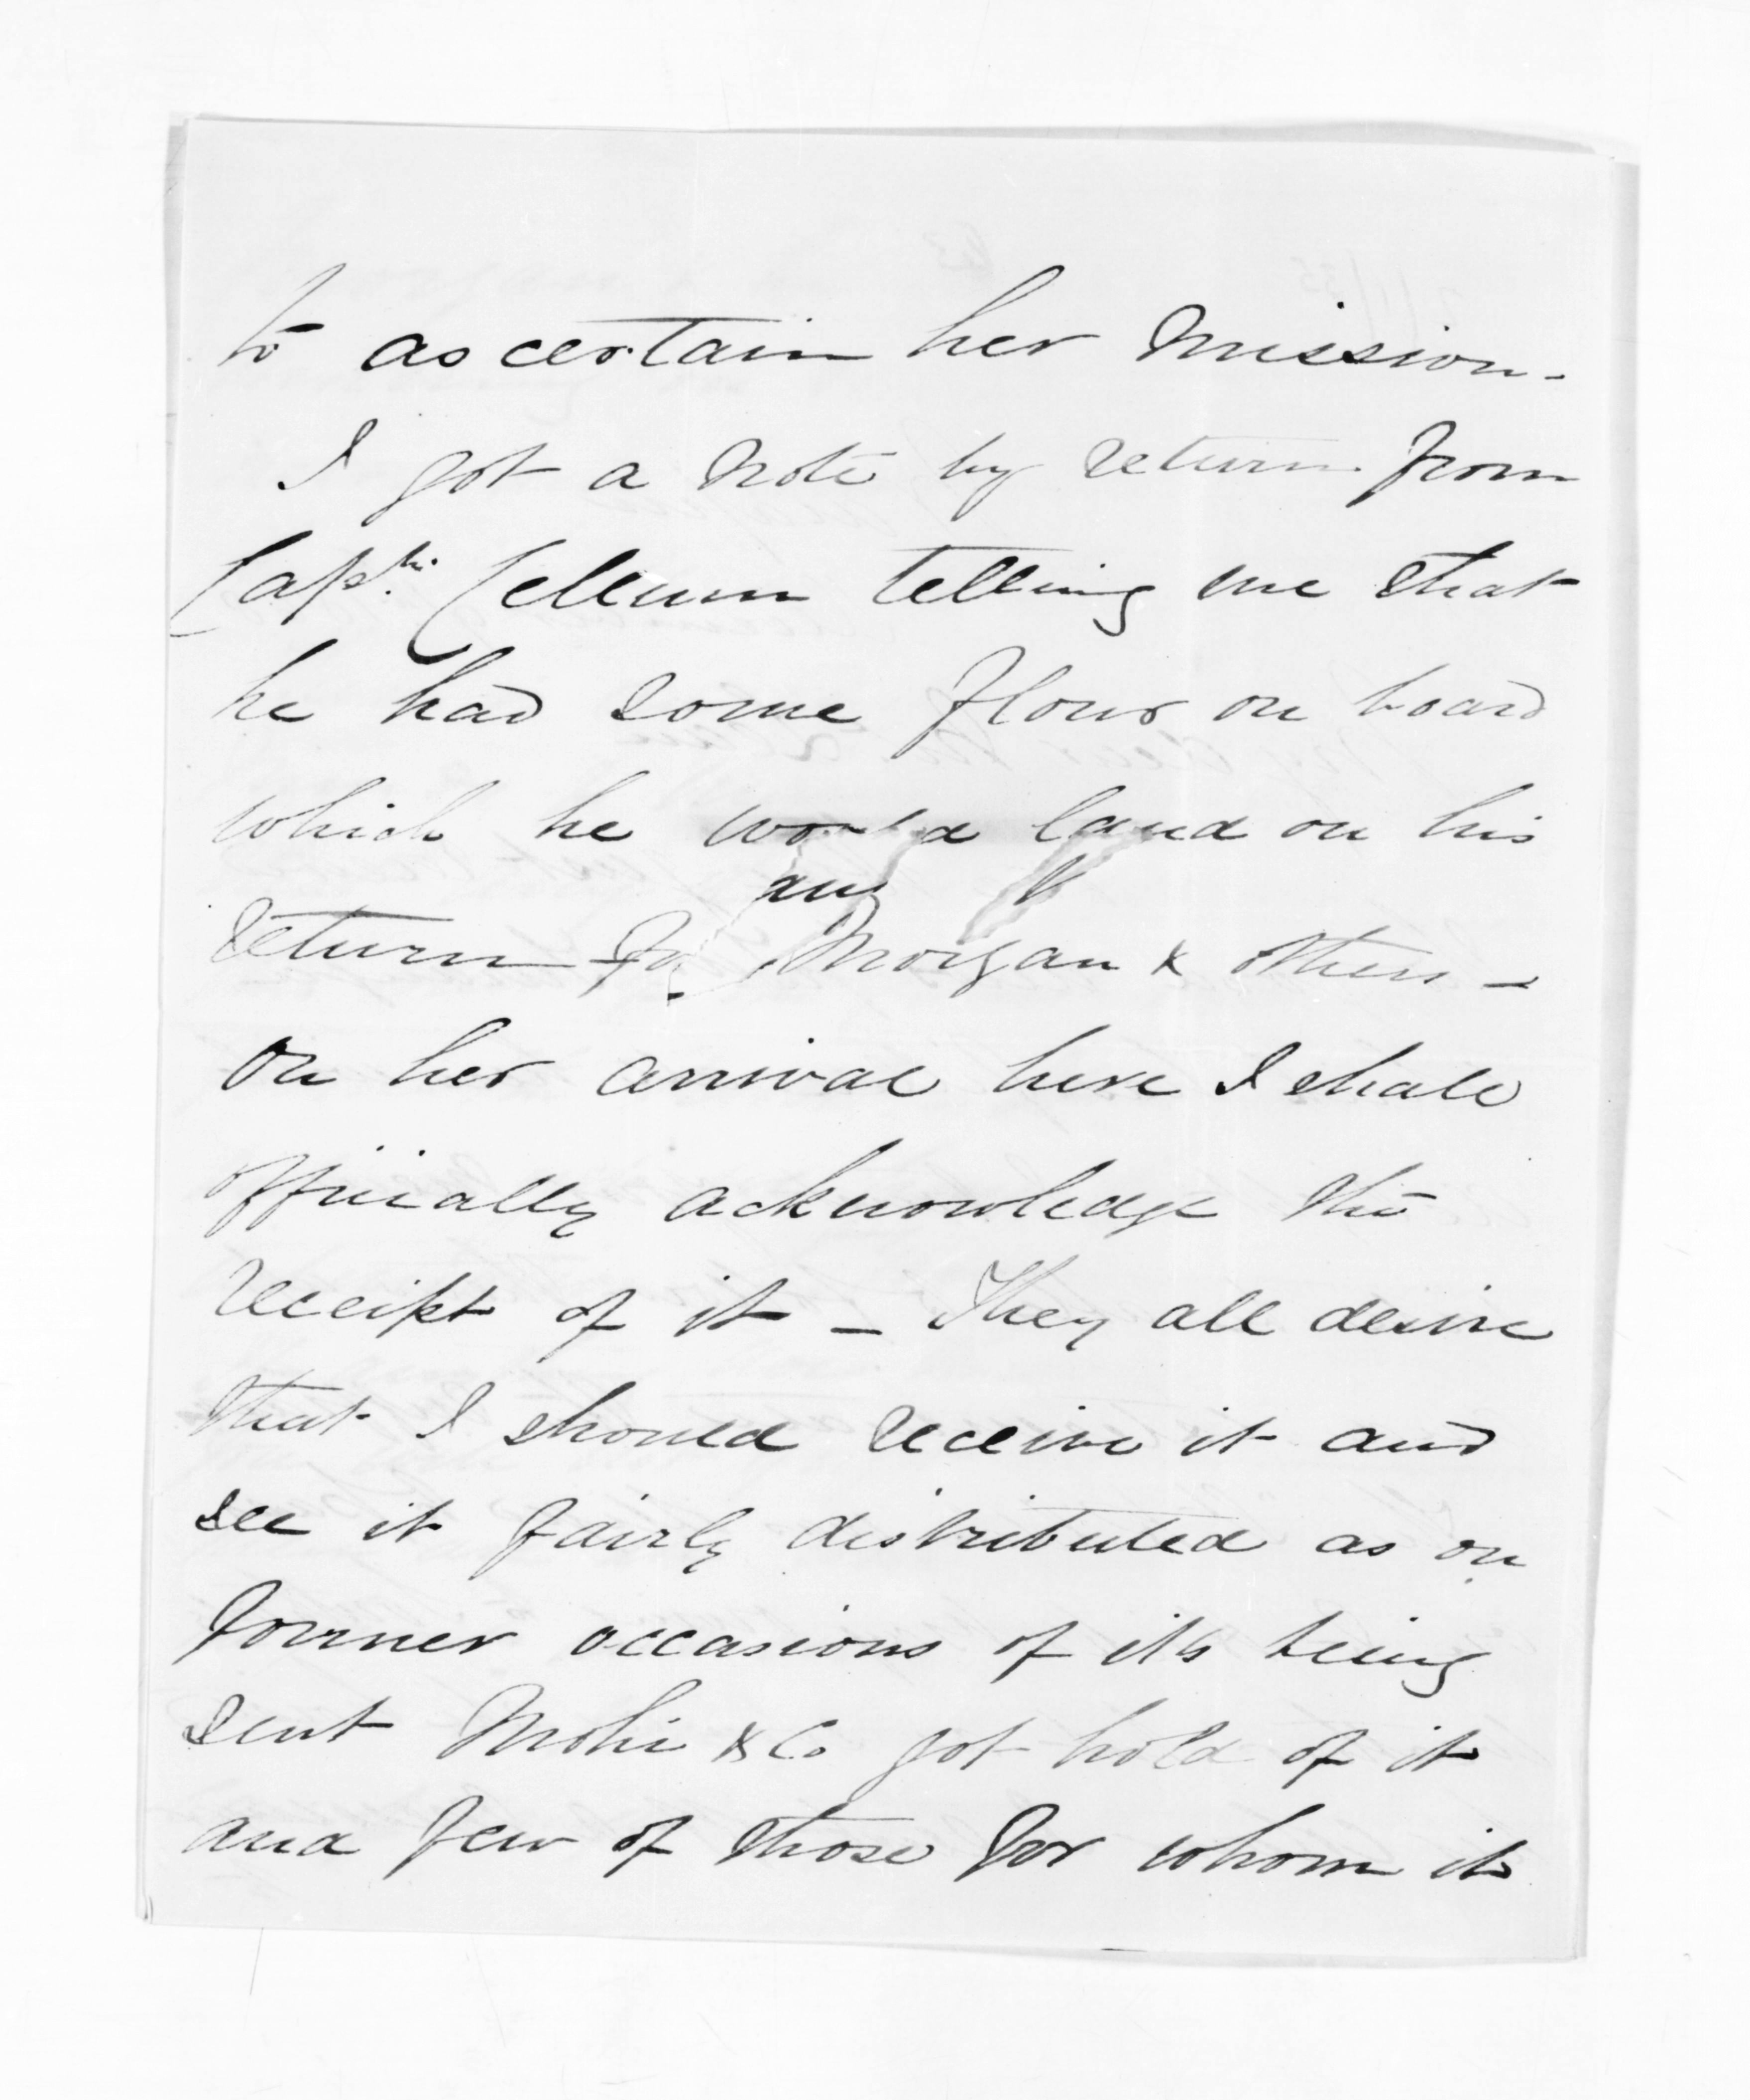 to ascertain her mission -
I got a note by return from
Captn. Cellum telling me that
he had some flour on board
which he would land on his
return for Morgan & others -
On her arrival here I shall
officially acknowledge the
receipt of it - They all desire
that I should receive it and
see it fairly distributed as on
former occasions of its being
sent Mohi & Co got hold of it
and few of those for whom it